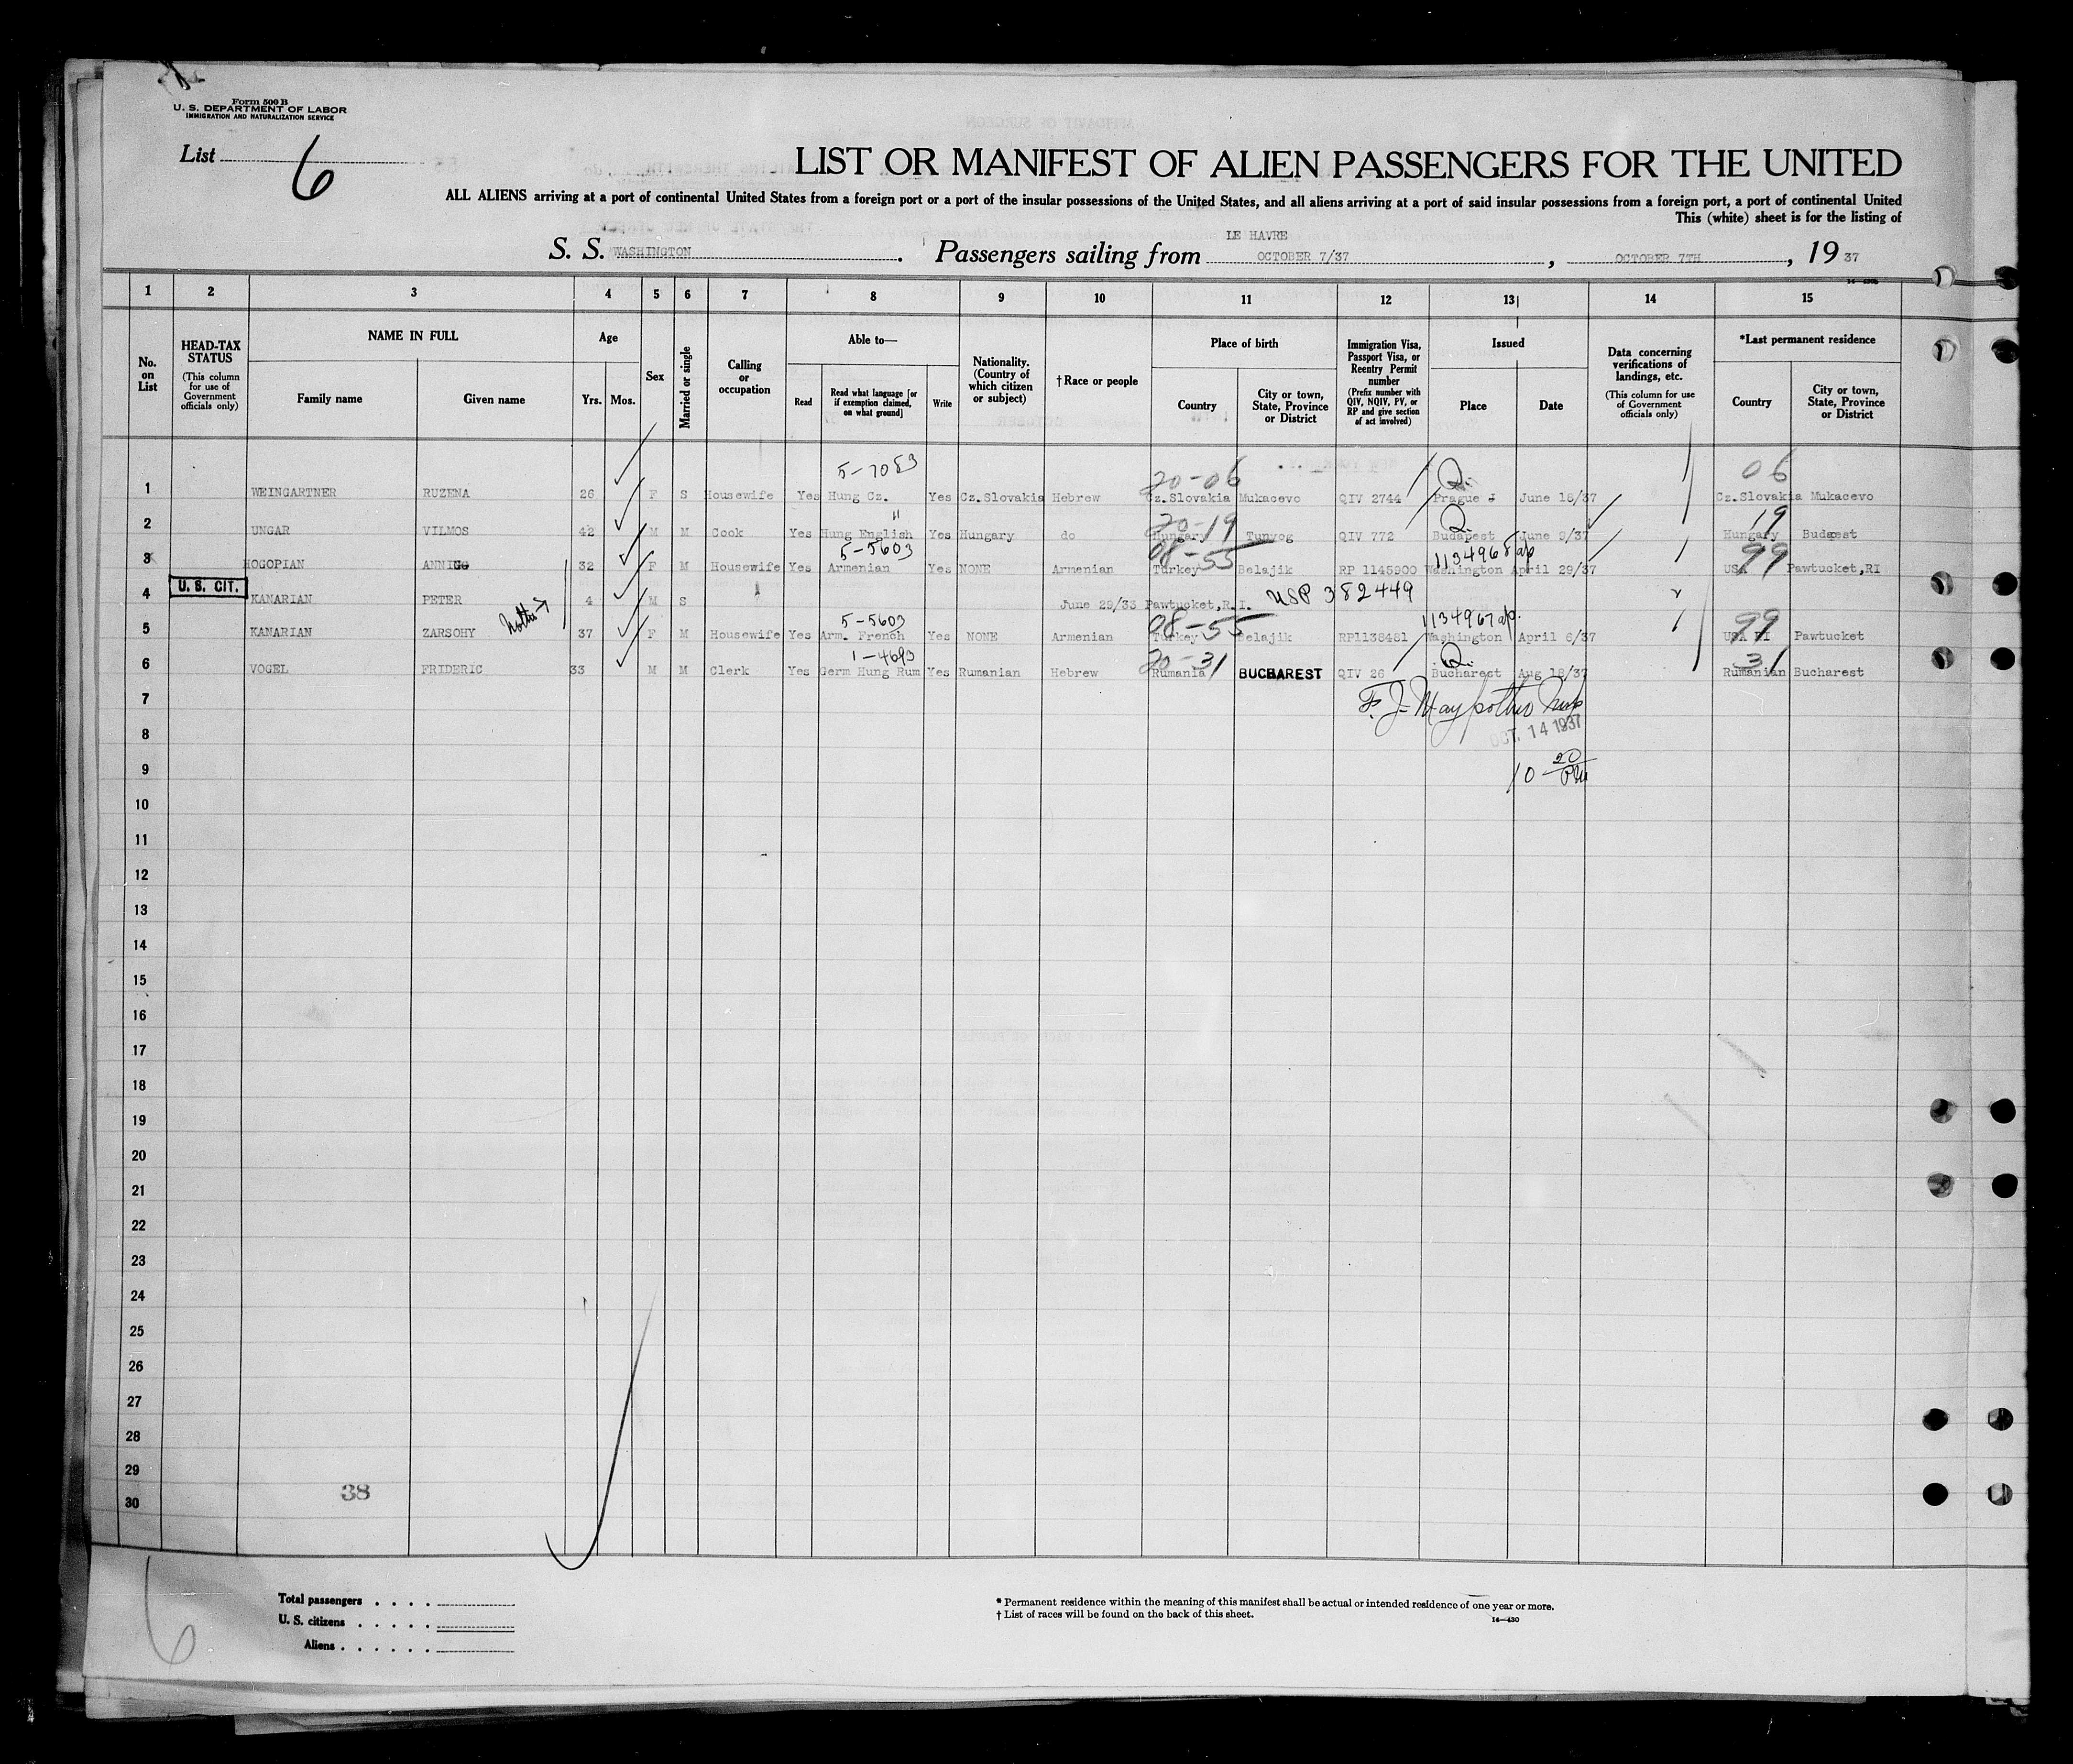 Form 500 B
U. S. DEPARTMENT OF LABOR
IMMIGRATION AND NATURALIZATION SERVICE
List 6
LIST OR MANIFEST OF ALIEN PASSENGERS FOR THE UNITED
ALL ALIENS arriving at a port of continental United States from a foreign port or a port of the insular possessions of the United States, and all aliens arriving at a port of said insular possessions from a foreign port, a port of continental United
This (white) sheet is for the listing of
LE HAVRE
S. S. WASHINGTON. Passengers sailing from OCTOBER 7/37, OCTOBER 7TH, 19 37
1 2 3 4 5 6 7 8 9 10 11 12 13 14 15
No. on List
HEAD-TAX STATUS (This column for use of Government officials only)
NAME IN FULL Family name Given name
Age Yrs. Mos.
Sex
Married or single
Calling or occupation
Able to— Read Read what language [or if exemption claimed, on what ground] Write
Nationality. (Country of which citizen or subject)
†Race or people
Place of birth Country City or town, State, Province or District
Immigration Visa, Passport Visa, or Reentry Permit number (Prefix number with QIV, NQIV, PV, or RP and give section of act involved)
Issued Place Date
Data concerning verifications of landings, etc. (This column for use of Government officials only)
*Last permanent residence Country City or town, State, Province or District
5-7083 20-06 Q. 06
1 WEINGARTNER RUZENA 26 F S Housewife Yes Hung Cz. Yes Cz.Slovakia Hebrew Cz.Slovakia Mukacevo QIV 2744 Prague June 18/37 Cz.Slovakia Mukacevo
" 20-19 Q. 19
2 UNGAR VILMOS 42 M M Cook Yes Hung English Yes Hungary do Hungary Tunyog QIV 772 Budapest June 9/37 Hungary Budapest
5-5603 08-55 1134968 99
3 HOGOPIAN 32 F M Housewife Yes Armenian Yes NONE Armenian Turkey Belajik RP 1145900 Washington April 29/37 USA Pawtucket,RI
U. S. CIT.
4 KANARIAN PETER 4 M S June 29/33 Pawtucket,R.I. USP 382449
Mother →
5-5603 08-55 1134967 99
5 KANARIAN ZARSOHY 37 F M Housewife Yes Arm. French Yes NONE Armenian Turkey Belajik RP1138481 Washington April 6/37 USA RI Pawtucket
1-4693 20-31 Q. 31
6 VOGEL FRIDERIC 33 M M Clerk Yes Germ Hung Rum Yes Rumanian Hebrew Rumania BUCHAREST QIV 26 Bucharest Aug 18/37 Rumanian Bucharest
7
8 OCT. 14 1937
9 10 20
10
11
12
13
14
15
16
17
18
19
20
21
22
23
24
25
26
27
28
29
30
38
6
Total passengers . . . .
U. S. citizens . . . . .
Aliens . . . . . .
* Permanent residence within the meaning of this manifest shall be actual or intended residence of one year or more.
† List of races will be found on the back of this sheet.
14—430